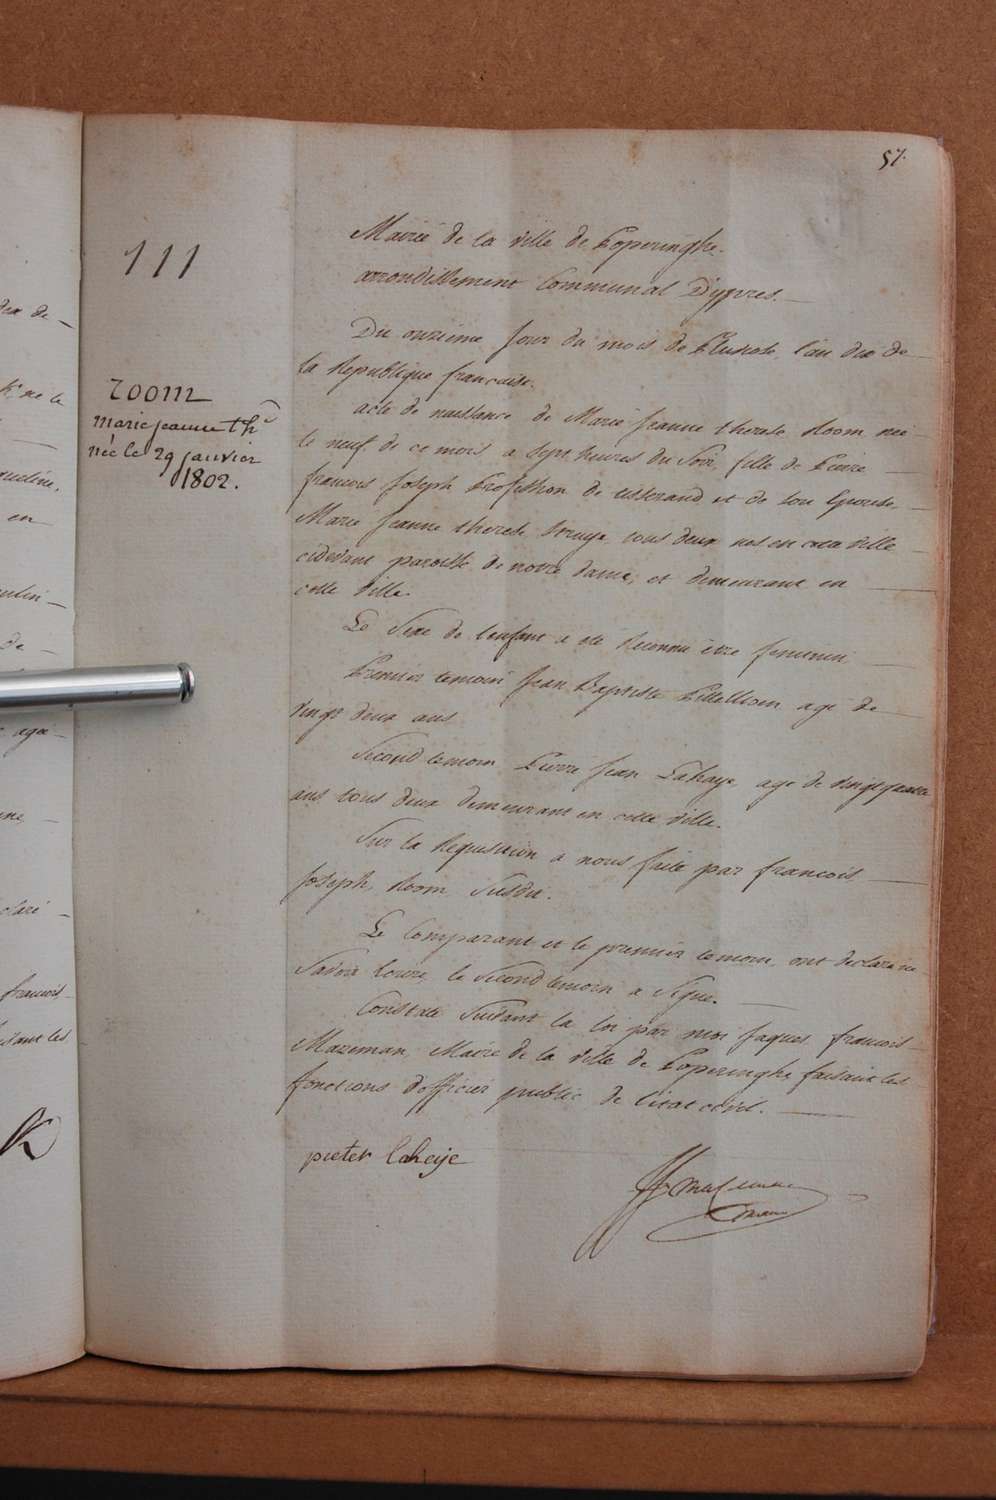 57.
111
room
marie jeanne th
née le 29 janvier
1802.
Mairie de la ville de Poperinghe.
arrondissement Communal D'ypres.
Du onzieme jour du mois de Pluviose l'an dix de
la Republique francaise.
acte de naissance de Marie Jeanne therese Room née
le neuf de ce mois a sept heures du Soir, fille de Pierre
francois Joseph Profession de tisserand et de Son Epouse,
Marie Jeanne therese, tous deux nés en cette ville
cidevant paroisse de notre dame, et demeurant en
cette ville.
Le Sexe de l'enfant a eté Reconnu être feminin
Premier temoin Jean Baptiste agé de
vingt deux ans
Second temoin Pierre Jean Lahaye, agé de vingt quatre
ans tous deux demeurant en cette ville.
Sur la Requisition a nous faite par francois
Joseph, Room Susdit.
Le Comparant et le premier temoin ont declaré ne
Savoir Ecrire, le Second temoin a Signé.
Constaté Suivant la loi par moi Jaques francois
Mazeman, Maire de la ville de Poperinghe faisant les
fonctions d'officier public de l'état civil.
pieter laheije
dex de
né le
en
de
agé
claré
francois
faisant les